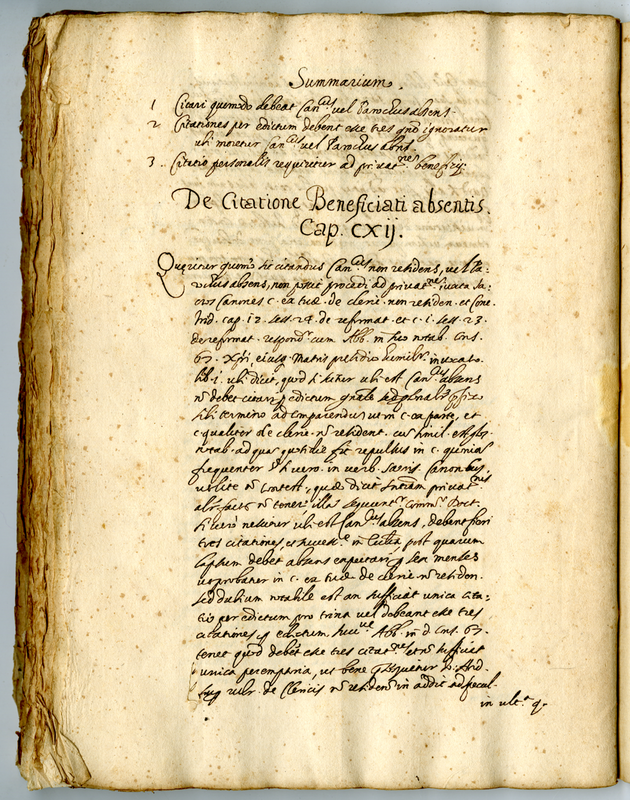 Summarium.
1 Citari quomodo debeat Can.cus vel Parochus absens.
2 Citationes per edictum debent esse tres qndo ignoratur
ubi moretur Can.cus vel Parochus abns.
3 Citatio personalis requiritur ad privat.nem beneficij.
De Citatione Beneficiati absentis.
Cap. CXIJ.
Queritur quom.o sit citandus Can.cus non residens, vel Pa:
absens, non possit procedi ad privat.ne iuxta sa:
cros Canones c. ex tuæ. de cleric. non residen. et Conc.
Trid. cap. 12. sess. 24. de reformat. et c. 1. sess. 23.
de reformat. respond.r cum Abb. in suo notab. Cns.
67. Xpi eiusq. Matris presidio humilit.r invocato.
lib. 1. ubi dicit, quod si scitur ubi est Can.cus absens
nõ debet citari edictum gnale sed
sibi termino ad comparendum ut in c. ex parte, et
c. qualiter de cleric. nõ resident.
notab. ad quas quotidie fit repulsus in c. quoniam
frequenter § si vero. in verb. sacris Canonibus
ut lite nõ contest. quæ dicit sentiam privat.nis
alr. facta nõ tener. illa sequuntur comm.r Doct.
si vero nescitur ubi est Can.cus absens, debent fieri
tres citationes, in Ecclia post quarum
lapsum debet absens expectari p sex menses
ut probatur in c. ex tuæ. de cleric. nõ residen.
sed dubium notabile est an sufficiat unica cita:
tio per edictum pro trina vel debeant esse tres
citationes p edictum. Abb. in d. Cns. 67.
tenet quod debent esse tres citat.nes et nõ sufficit
unica peremptoria, ut bene
rubr. de Clericis nõ residen. in addit. ad specul.
in ult.a q.